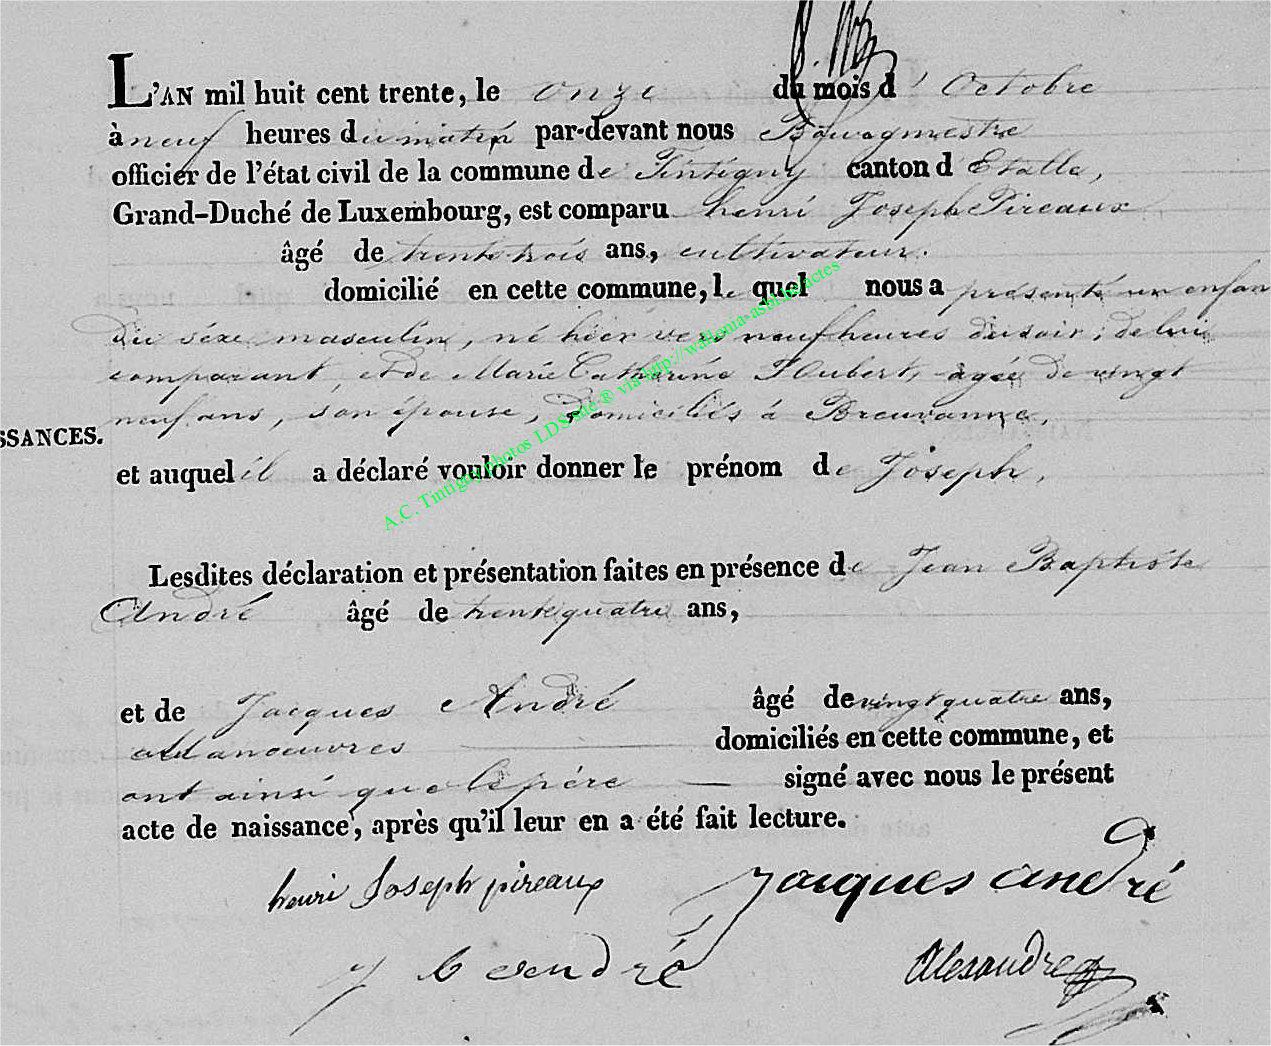 L'AN mil huit cent trente, le onze du mois d' Octobre
à neuf heures du matin par-devant nous Bourgmestre
officier de l'état civil de la commune de Tintigny canton d' Etalle,
Grand-Duché de Luxembourg, est comparu henri Joseph Pireaux
âgé de trente trois ans, cultivateur.
domicilié en cette commune, le quel nous a présenté un enfan
du séxe masculin, né hier vers neuf heures du soir, de lui
comparant, et de Marie Catherine Hubert, agée de vingt
neuf ans, son épouse, domiciliés à Breuvanne,
SSANCES.
et auquel il a déclaré vouloir donner le prénom de Joseph,
A.C. Tintigny photos LDS site ® via http://wallonia-asbl.be/actes
Lesdites déclaration et présentation faites en présence de Jean Baptiste
André âgé de trente quatre ans,
et de Jacques André âgé de vingt quatre ans,
Manoeuvres domiciliés en cette commune, et
ont ainsi que le père signé avec nous le présent
acte de naissance, après qu'il leur en a été fait lecture.
henri Joseph pireaux Jacques andré
J b andré Alexandre